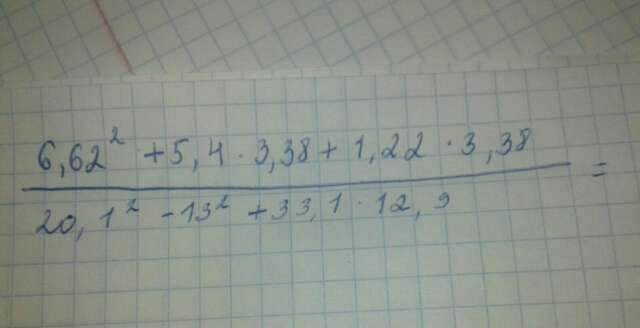 6,62² + 5,4 · 3,38 + 1,22 · 3,38
20,1² - 13² + 33,1 · 12,9
=